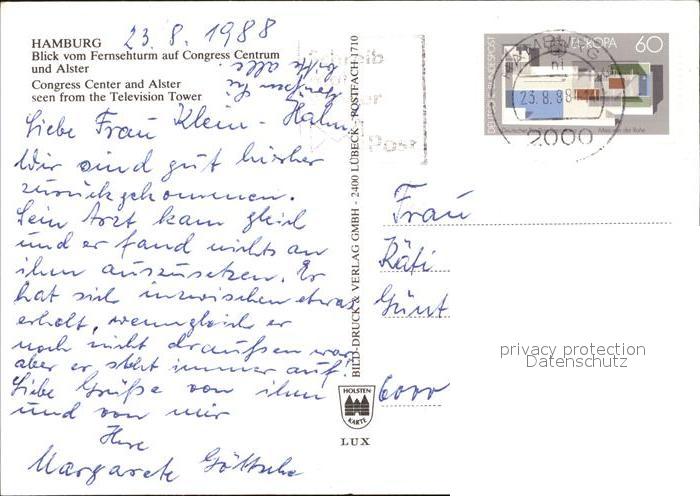 HAMBURG
23. 8. 1988
Blick vom Fernsehturm auf Congress Centrum
und Alster
Congress Center and Alster
seen from the Television Tower
Grüßen Sie
bitte alle.
Liebe Frau Klein-Hahn
Wir sind gut hierher
zurückgekommen.
Sein Arzt kam gleich
und er fand nichts an
ihm auszusetzen. Er
hat sich inzwischen etwas
erholt, wenngleich er
noch nicht draußen war
aber er steht immer auf!
Liebe Grüße von ihm
und von mir
Ihre
Margarete Göttsche
BILD-DRUCK & VERLAG GMBH - 2400 LÜBECK - POSTFACH 1710
HOLSTEN
KARTE
LUX
Schreib
Post
DEUTSCHE BUNDESPOST
EUROPA 60
23.8.88
2000
Frau
Käti
Günt
6000
privacy protection
Datenschutz